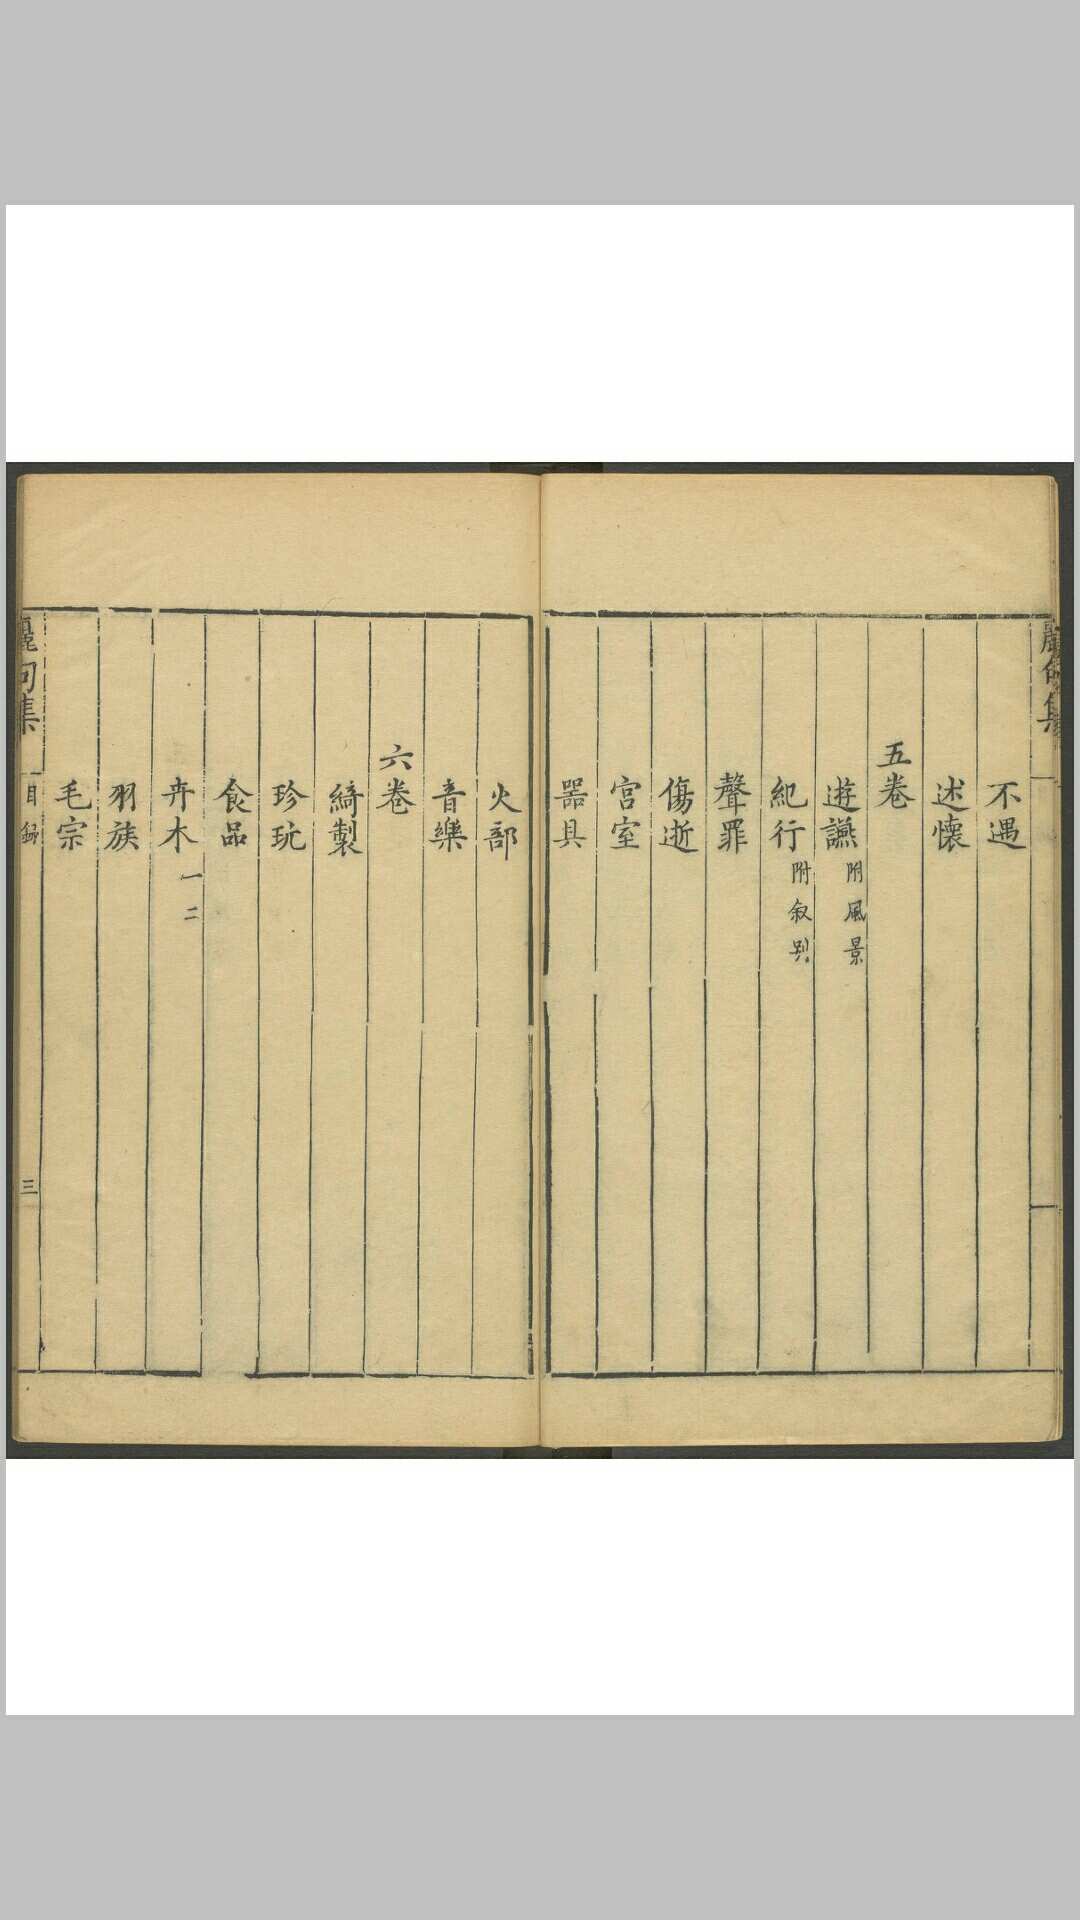 麗句集
不遇
述懷
五卷
遊讌附風景
紀行附叙别
聲罪
傷逝
宮室
器具
火部
音樂
六卷
綺製
珍玩
食品
卉木一二
羽族
毛宗
麗句集
目錄
三